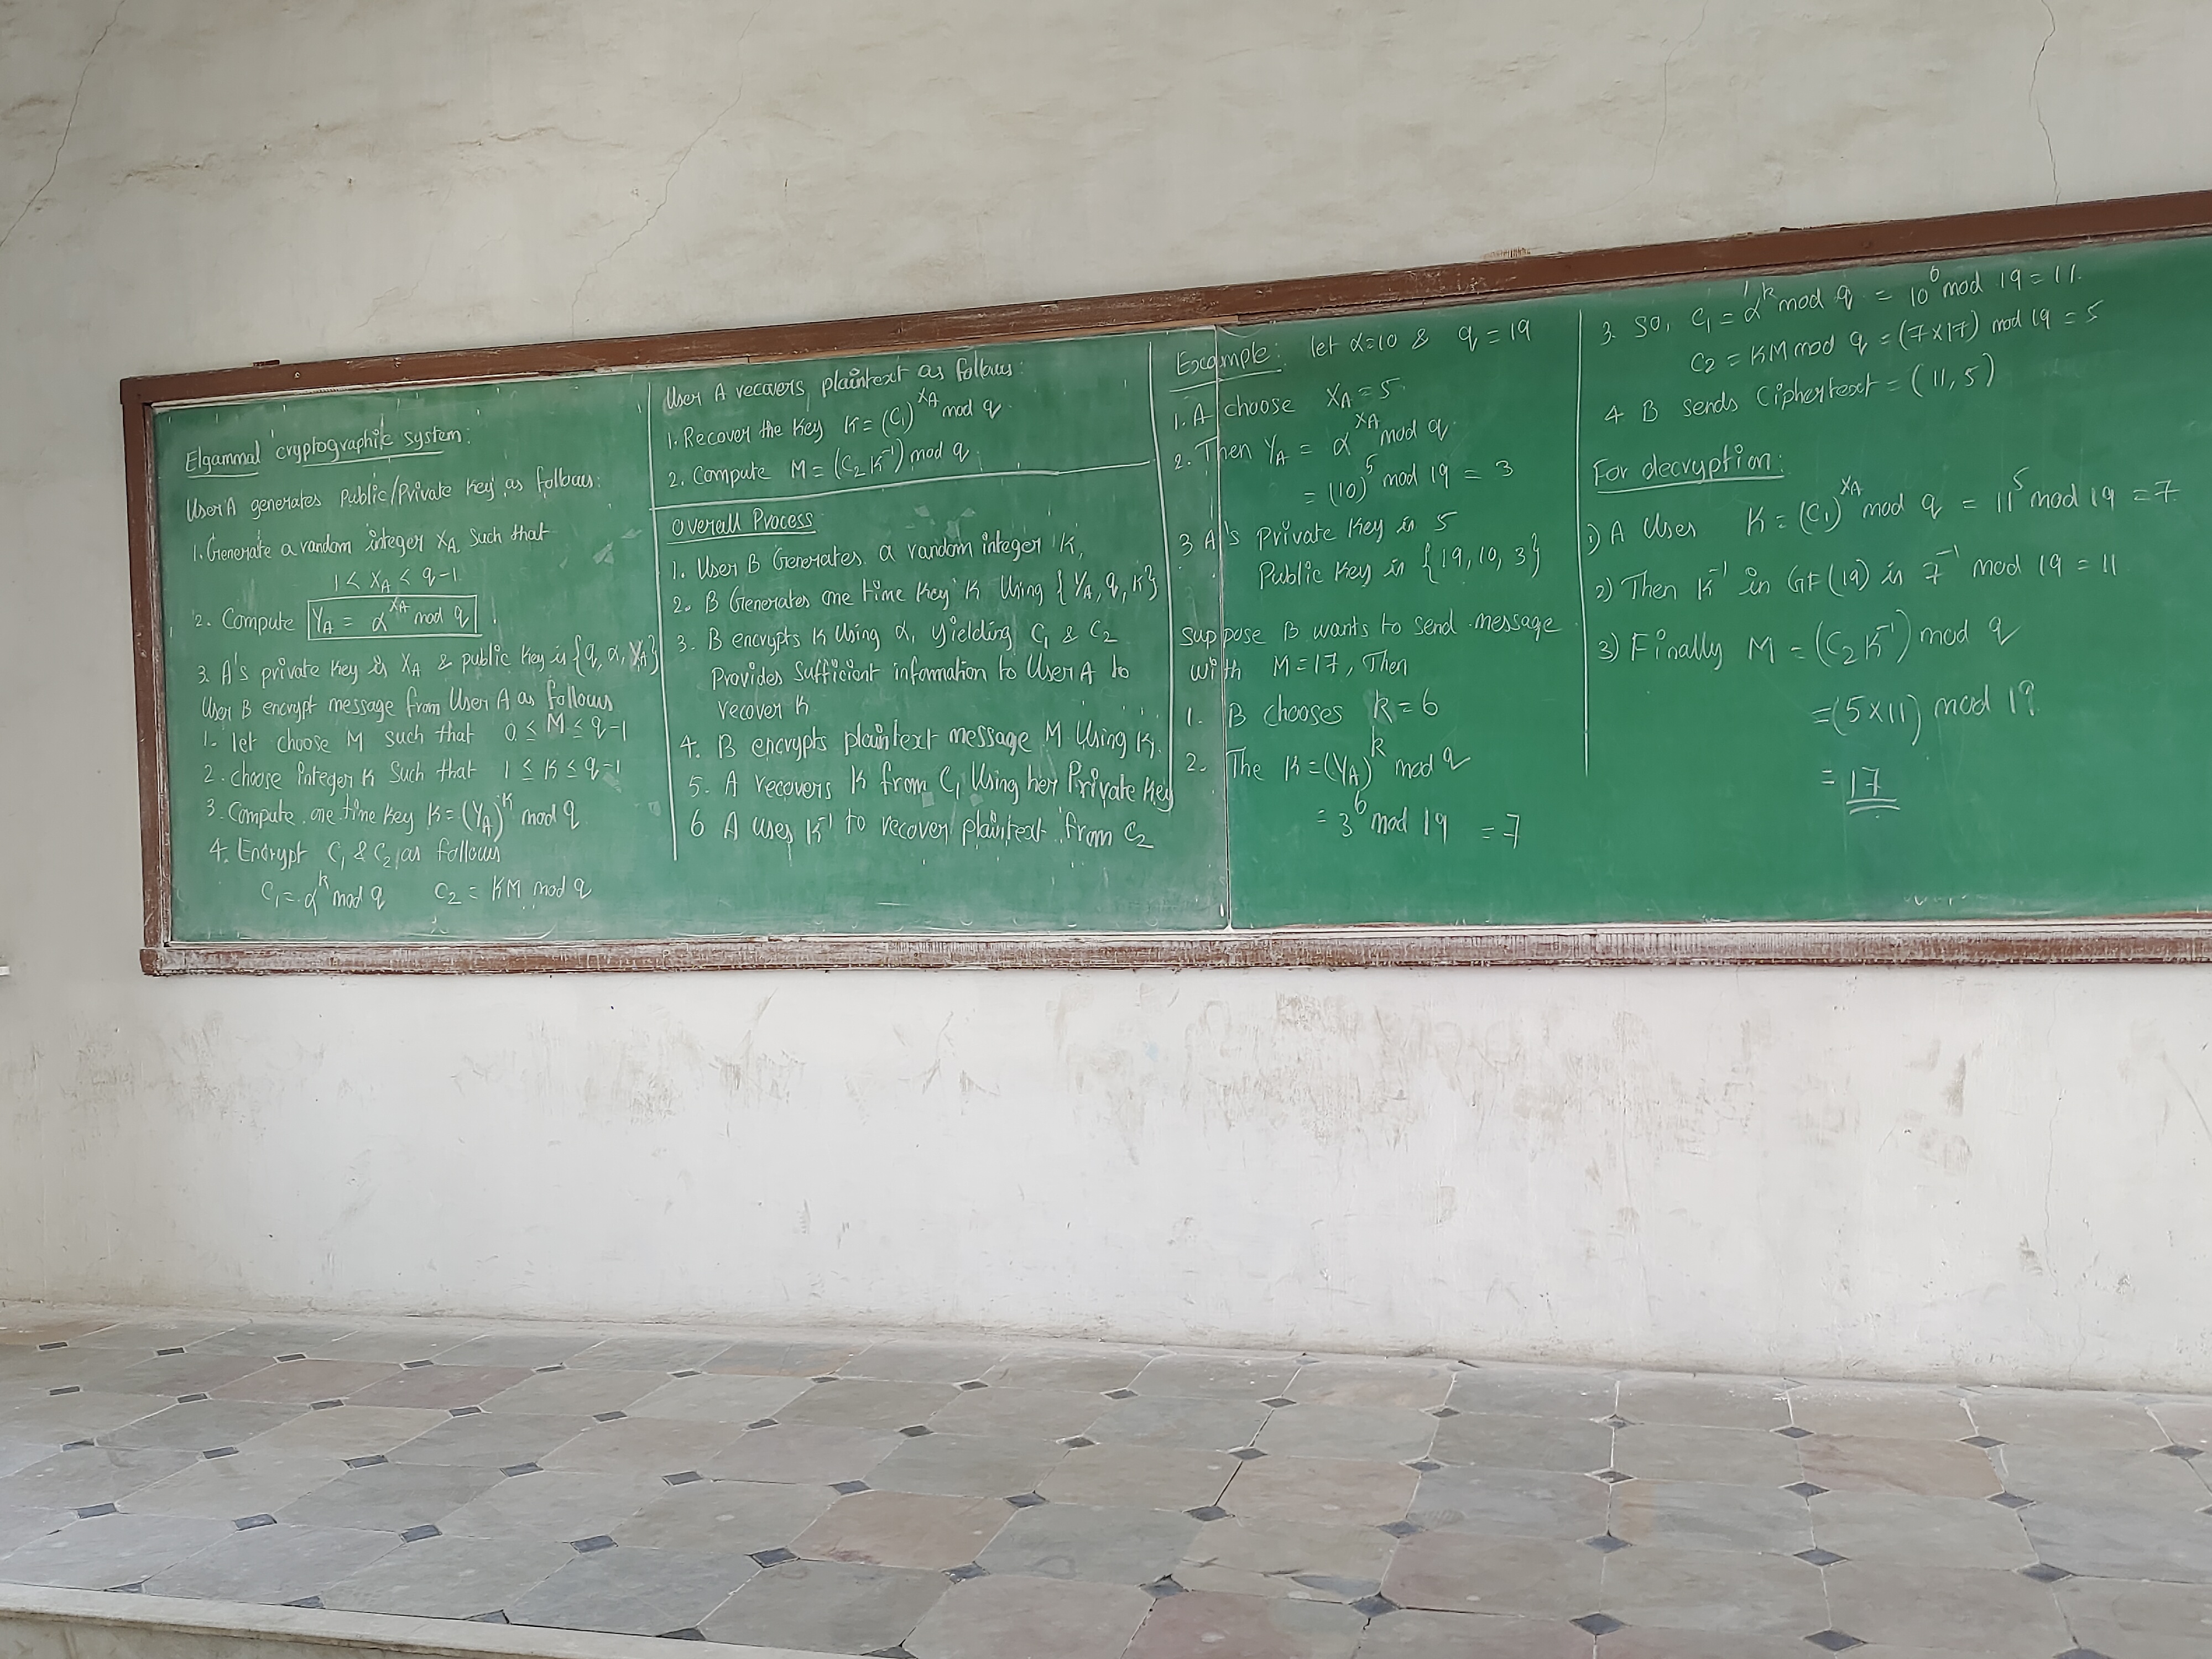 Elgammal cryptographic system:
User A generates Public/Private Key as follows:
1. Generate a random integer XA Such that
1 < XA < q-1
2. Compute YA = α^XA mod q
3. A's private key is XA & public key is {q, α, YA}
User B encrypt message from User A as follows
1. let choose M such that 0 ≤ M ≤ q-1
2. choose integer K Such that 1 ≤ K ≤ q-1
3. Compute one time key K = (YA)^K mod q
4. Encrypt C1 & C2 as follows
C1 = α^k mod q C2 = KM mod q
User A recovers plaintext as follows:
1. Recover the Key K = (C1)^XA mod q
2. Compute M = (C2 K^-1) mod q
Overall Process
1. User B Generates a random integer K,
2. B Generates one time Key K Using {YA, q, K}
3. B encrypts K Using α, yielding C1 & C2
Provides Sufficient information to User A to
recover K
4. B encrypts plaintext message M Using K
5. A recovers K from C1 Using her Private Key
6 A uses K^-1 to recover plaintext from C2
Example: let α=10 & q = 19
1. A choose XA = 5
2. Then YA = α^XA mod q
= (10)^5 mod 19 = 3
3 A's Private Key is 5
Public Key is {19, 10, 3}
Suppose B wants to send message
with M = 17, Then
1. B chooses k = 6
2. The K = (YA)^k mod q
= 3^6 mod 19 = 7
3. So, C1 = α^k mod q = 10^6 mod 19 = 11
C2 = KM mod q = (7×17) mod 19 = 5
4 B sends Ciphertext = (11, 5)
For decryption:
1) A Uses K = (C1)^XA mod q = 11^5 mod 19 = 7
2) Then K^-1 in GF(19) is 7^-1 mod 19 = 11
3) Finally M = (C2 K^-1) mod q
= (5×11) mod 19
= 17